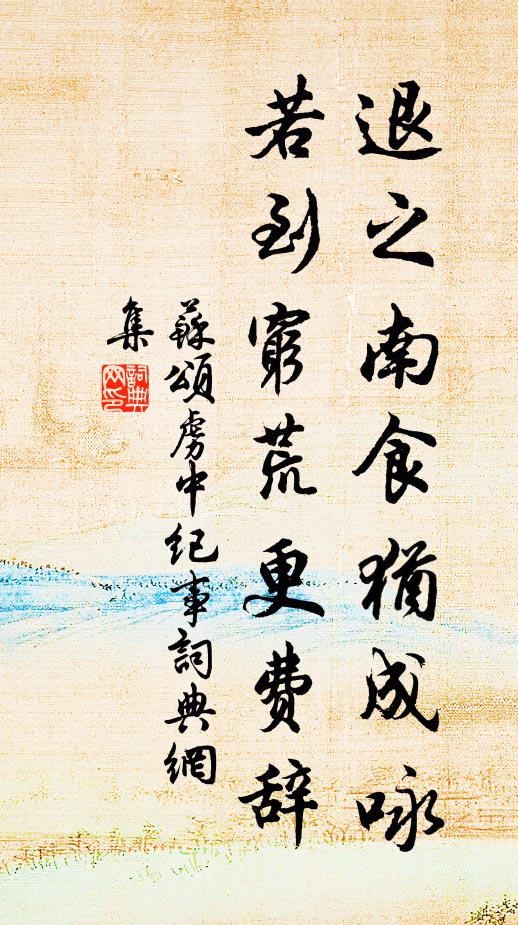 退之南食猶成咏
若到窮荒更费辞
蘇頌虜中纪事詞典網
集
詞典
网印